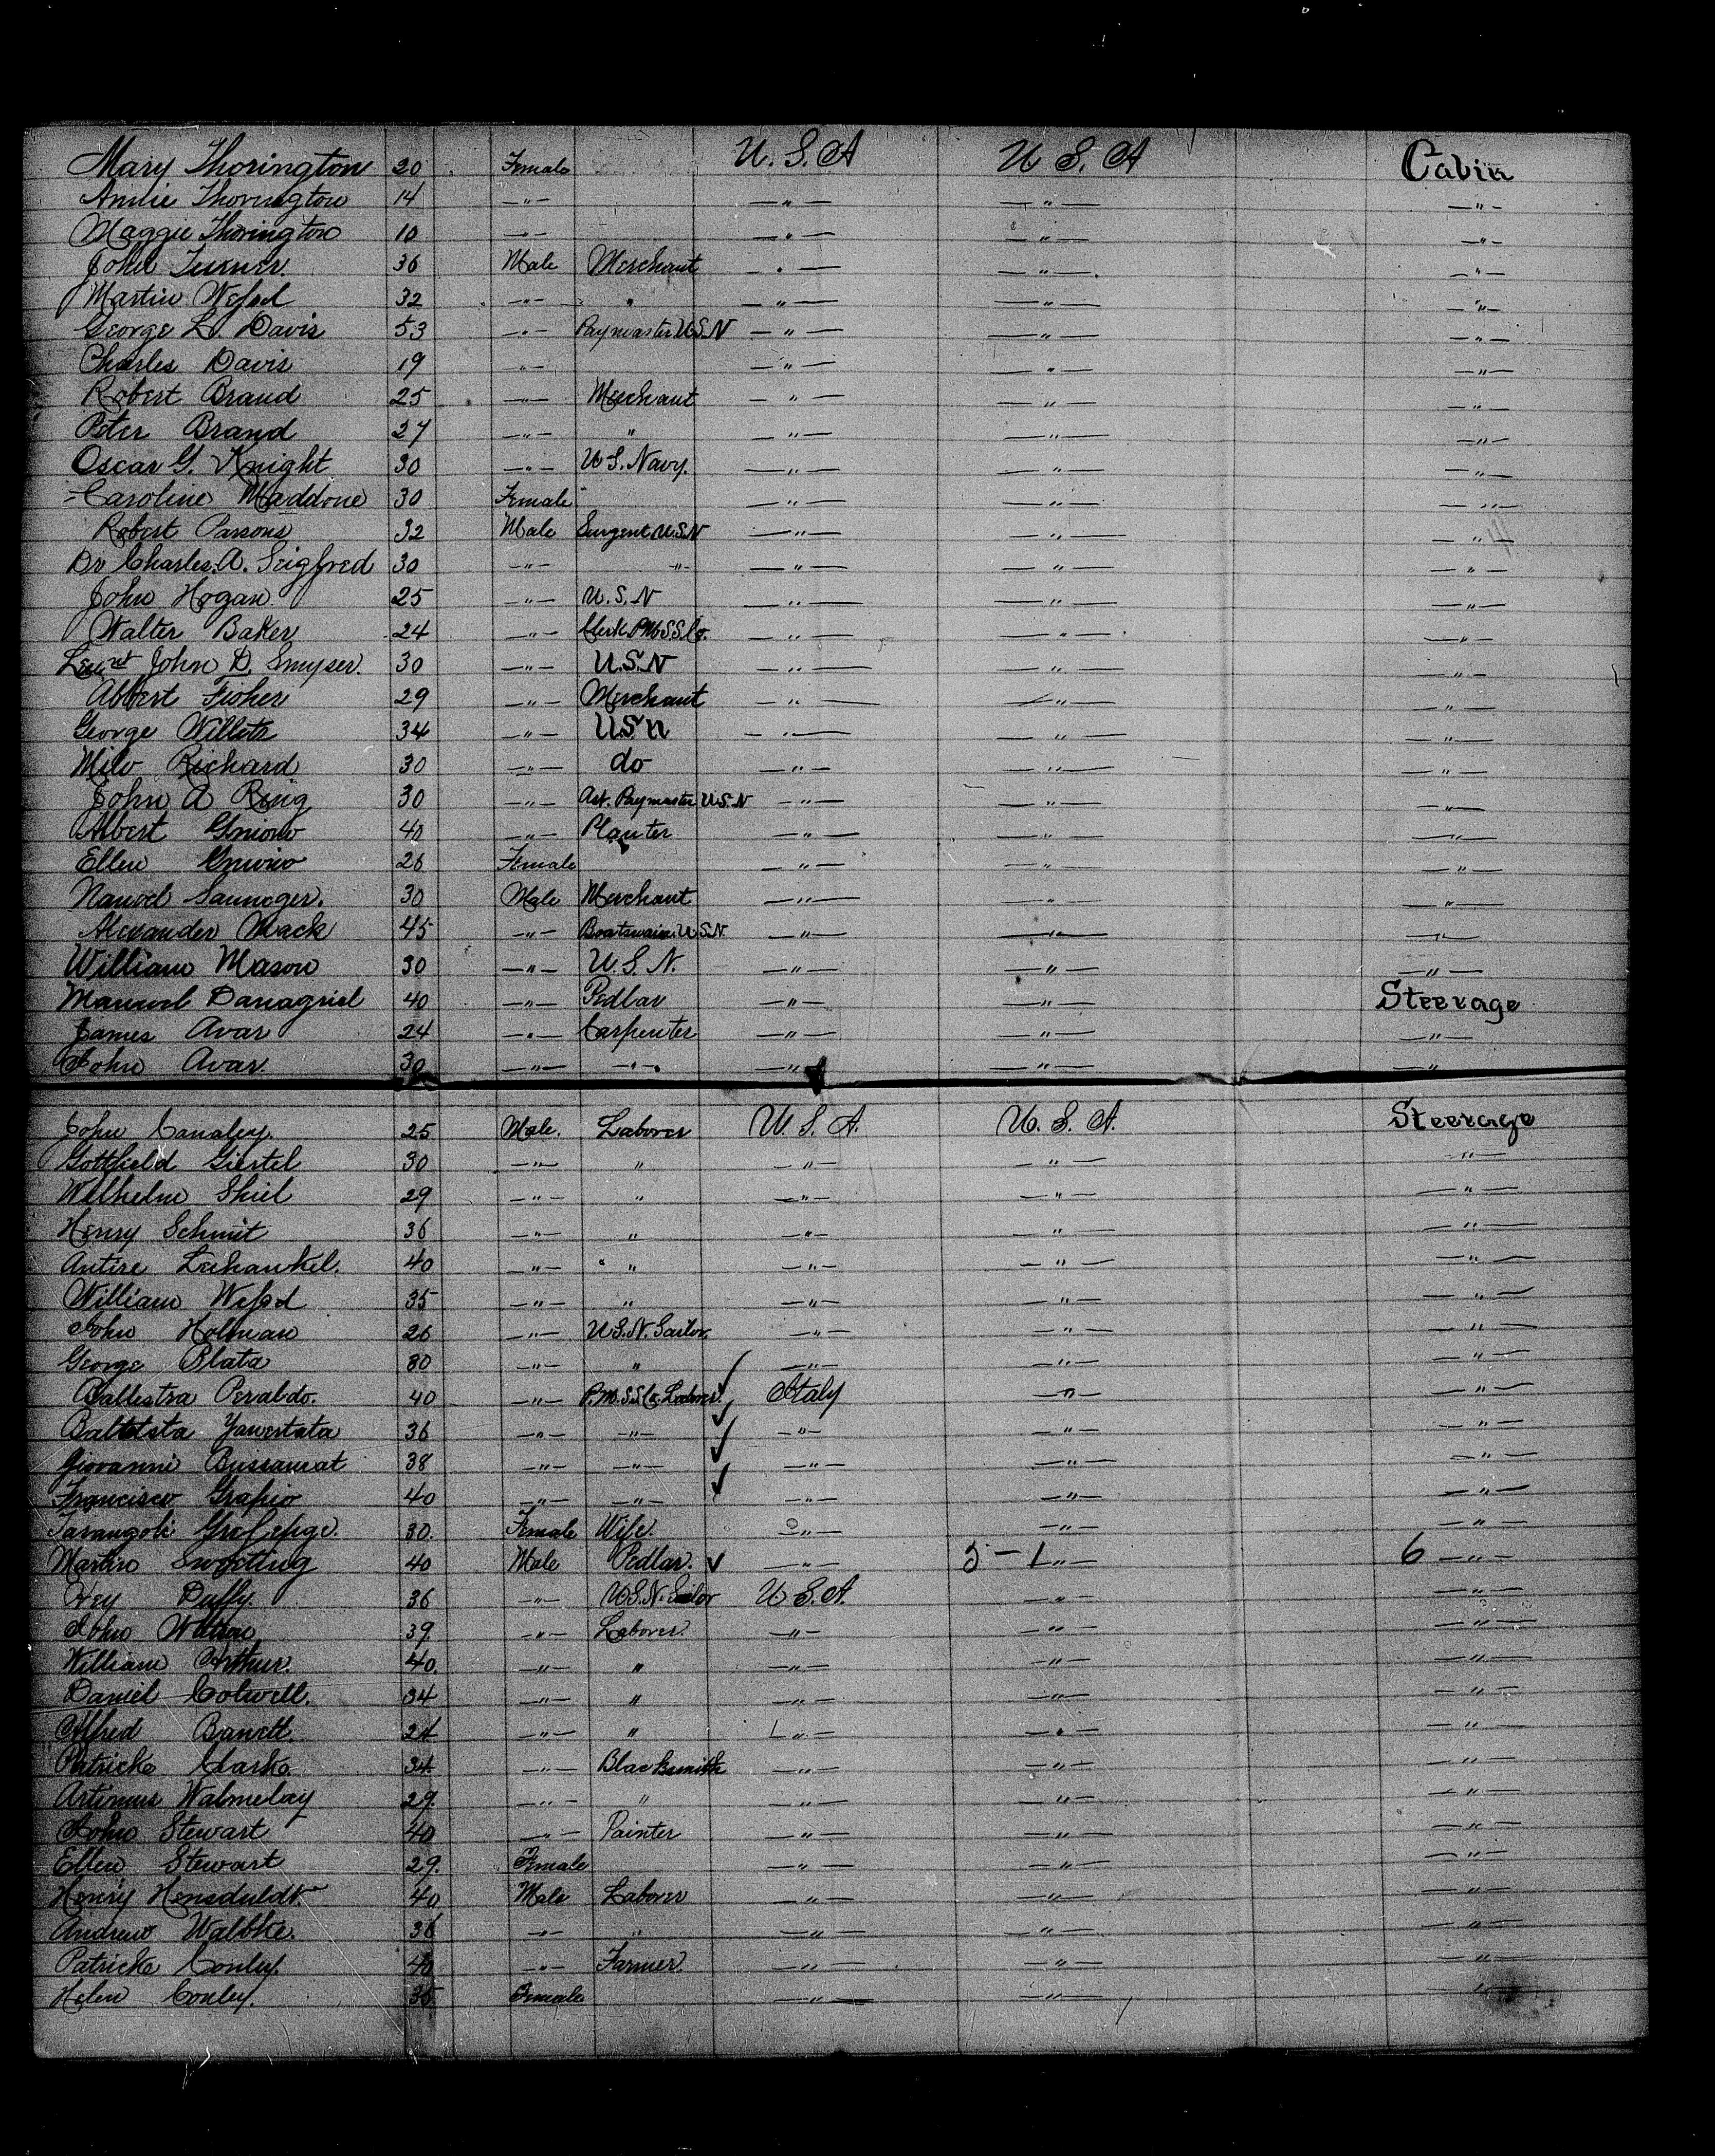 Mary Thorington 20 Female U.S.A U.S.A Cabin
Annie Thorington 14 —"— —"— —"— —"—
Maggie Thorington 10 —"— —"— —"— —"—
John Turner. 36 Male Merchant —"— —"— —"—
Martin 32 —"— " —"— —"— —"—
George L. Davis 53 —"— Paymaster U.S.N —"— —"— —"—
Charles Davis 19 —"— —"— —"— —"—
Robert Brand 25 —"— Merchant —"— —"— —"—
Peter Brand 27 —"— " —"— —"— —"—
Oscar G. Knight 30 —"— U.S. Navy. —"— —"— —"—
Caroline Maddone 30 Female —"— —"— —"—
Robert Parsons 32 Male Surgent U.S.N —"— —"— —"—
Dr Charles. A. Seigfred 30 —"— —"— —"— —"— —"—
John Hogan 25 —"— U.S.N —"— —"— —"—
Walter Baker 24 —"— Clerk. P.M.S.S.Co. —"— —"— —"—
John D. Smyser. 30 —"— U.S.N —"— —"— —"—
Albert Fisher 29 —"— Merchant —"— —"— —"—
George Willets 34 —"— U.S.N —"— —"— —"—
Milo Richard 30 —"— do —"— —"— —"—
John A Ring 30 —"— Ast. Paymaster U.S.N —"— —"— —"—
Albert 40 —"— Planter —"— —"— —"—
Ellen 26 Female —"— —"— —"—
30 Male Merchant —"— —"— —"—
Alexander Mack 45 —"— Boatswain. U.S.N. —"— —"— —"—
William Mason 30 —"— U.S.N. —"— —"— —"—
Manuel Danagriel 40 —"— Pedlar —"— —"— Steerage
James Avar 24 —"— Carpenter —"— —"— —"—
John Avar. 30 —"— —"— —"— —"— —"—
John Canaley. 25 Male. Laborer U.S.A. U.S.A. Steerage
Gottfield Giestel 30 —"— " —"— —"— —"—
Wilhelm Shiel 29 —"— " —"— —"— —"—
Henry Schmit 36 —"— " —"— —"— —"—
40 —"— " —"— —"— —"—
William 35 —"— " —"— —"— —"—
John Holman 26 —"— U.S.N. Sailor. —"— —"— —"—
George Plata 30 —"— " —"— —"— —"—
Ballestra Perabdo. 40 —"— P.M.S.S.Co. Laborer. Italy —"— —"—
Battista 36 —"— —"— —"— —"— —"—
Giovanni Bussamat 38 —"— —"— —"— —"— —"—
Francisco 40 —"— —"— —"— —"— —"—
30. Female Wife. —"— —"— —"—
Martin Sweeting 40 Male Pedlar. —"— 5 – 1 —"— 6 —"—
Duffy. 36 —"— U.S.N. Sailor U.S.A. —"— —"—
John 39 —"— Laborer. —"— —"— —"—
William Arthur. 40. —"— " —"— —"— —"—
Daniel Colwell. 34 —"— " —"— —"— —"—
Alfred Barrett. 24 —"— " —"— —"— —"—
Patricke Clarke. 34 —"— Blacksmith —"— —"— —"—
Artimus Walmelay 29. —"— " —"— —"— —"—
John Stewart 40 —"— Painter —"— —"— —"—
Ellen Stewart 29. Female —"— —"— —"—
Henry Hensduldt 40 Male Laborer —"— —"— —"—
Andrew Walbke. 36 —"— " —"— —"— —"—
Patricke Conley. 40 —"— Farmer. —"— —"— —"—
Helen Conley. 35 Female —"— —"— —"—